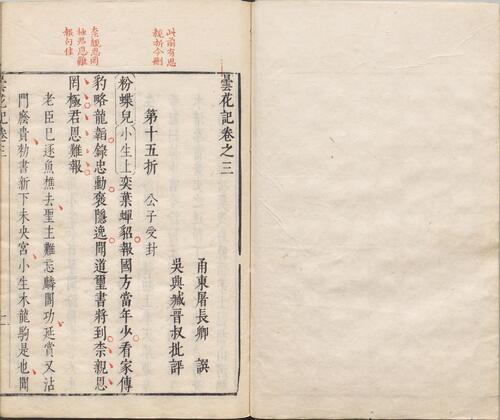 此前有恩
親折今刪
曇花記卷之三
甬東屠長卿 譔
吳興臧晉叔批評
第十五折 公子受封
粉蝶兒 小生上 奕葉蟬貂報國方當年少看家傳
柰親恩罔
極君恩難
報句佳
豹略龍韜錄忠勳褒隱逸聞道璽書將到柰親恩
罔極君恩難報
老臣已逐魚樵去聖主難忘麟閣功延賞又沾
門廕貴勑書新下未央宮小生木龍駒是也聞
曇花記卷三 一